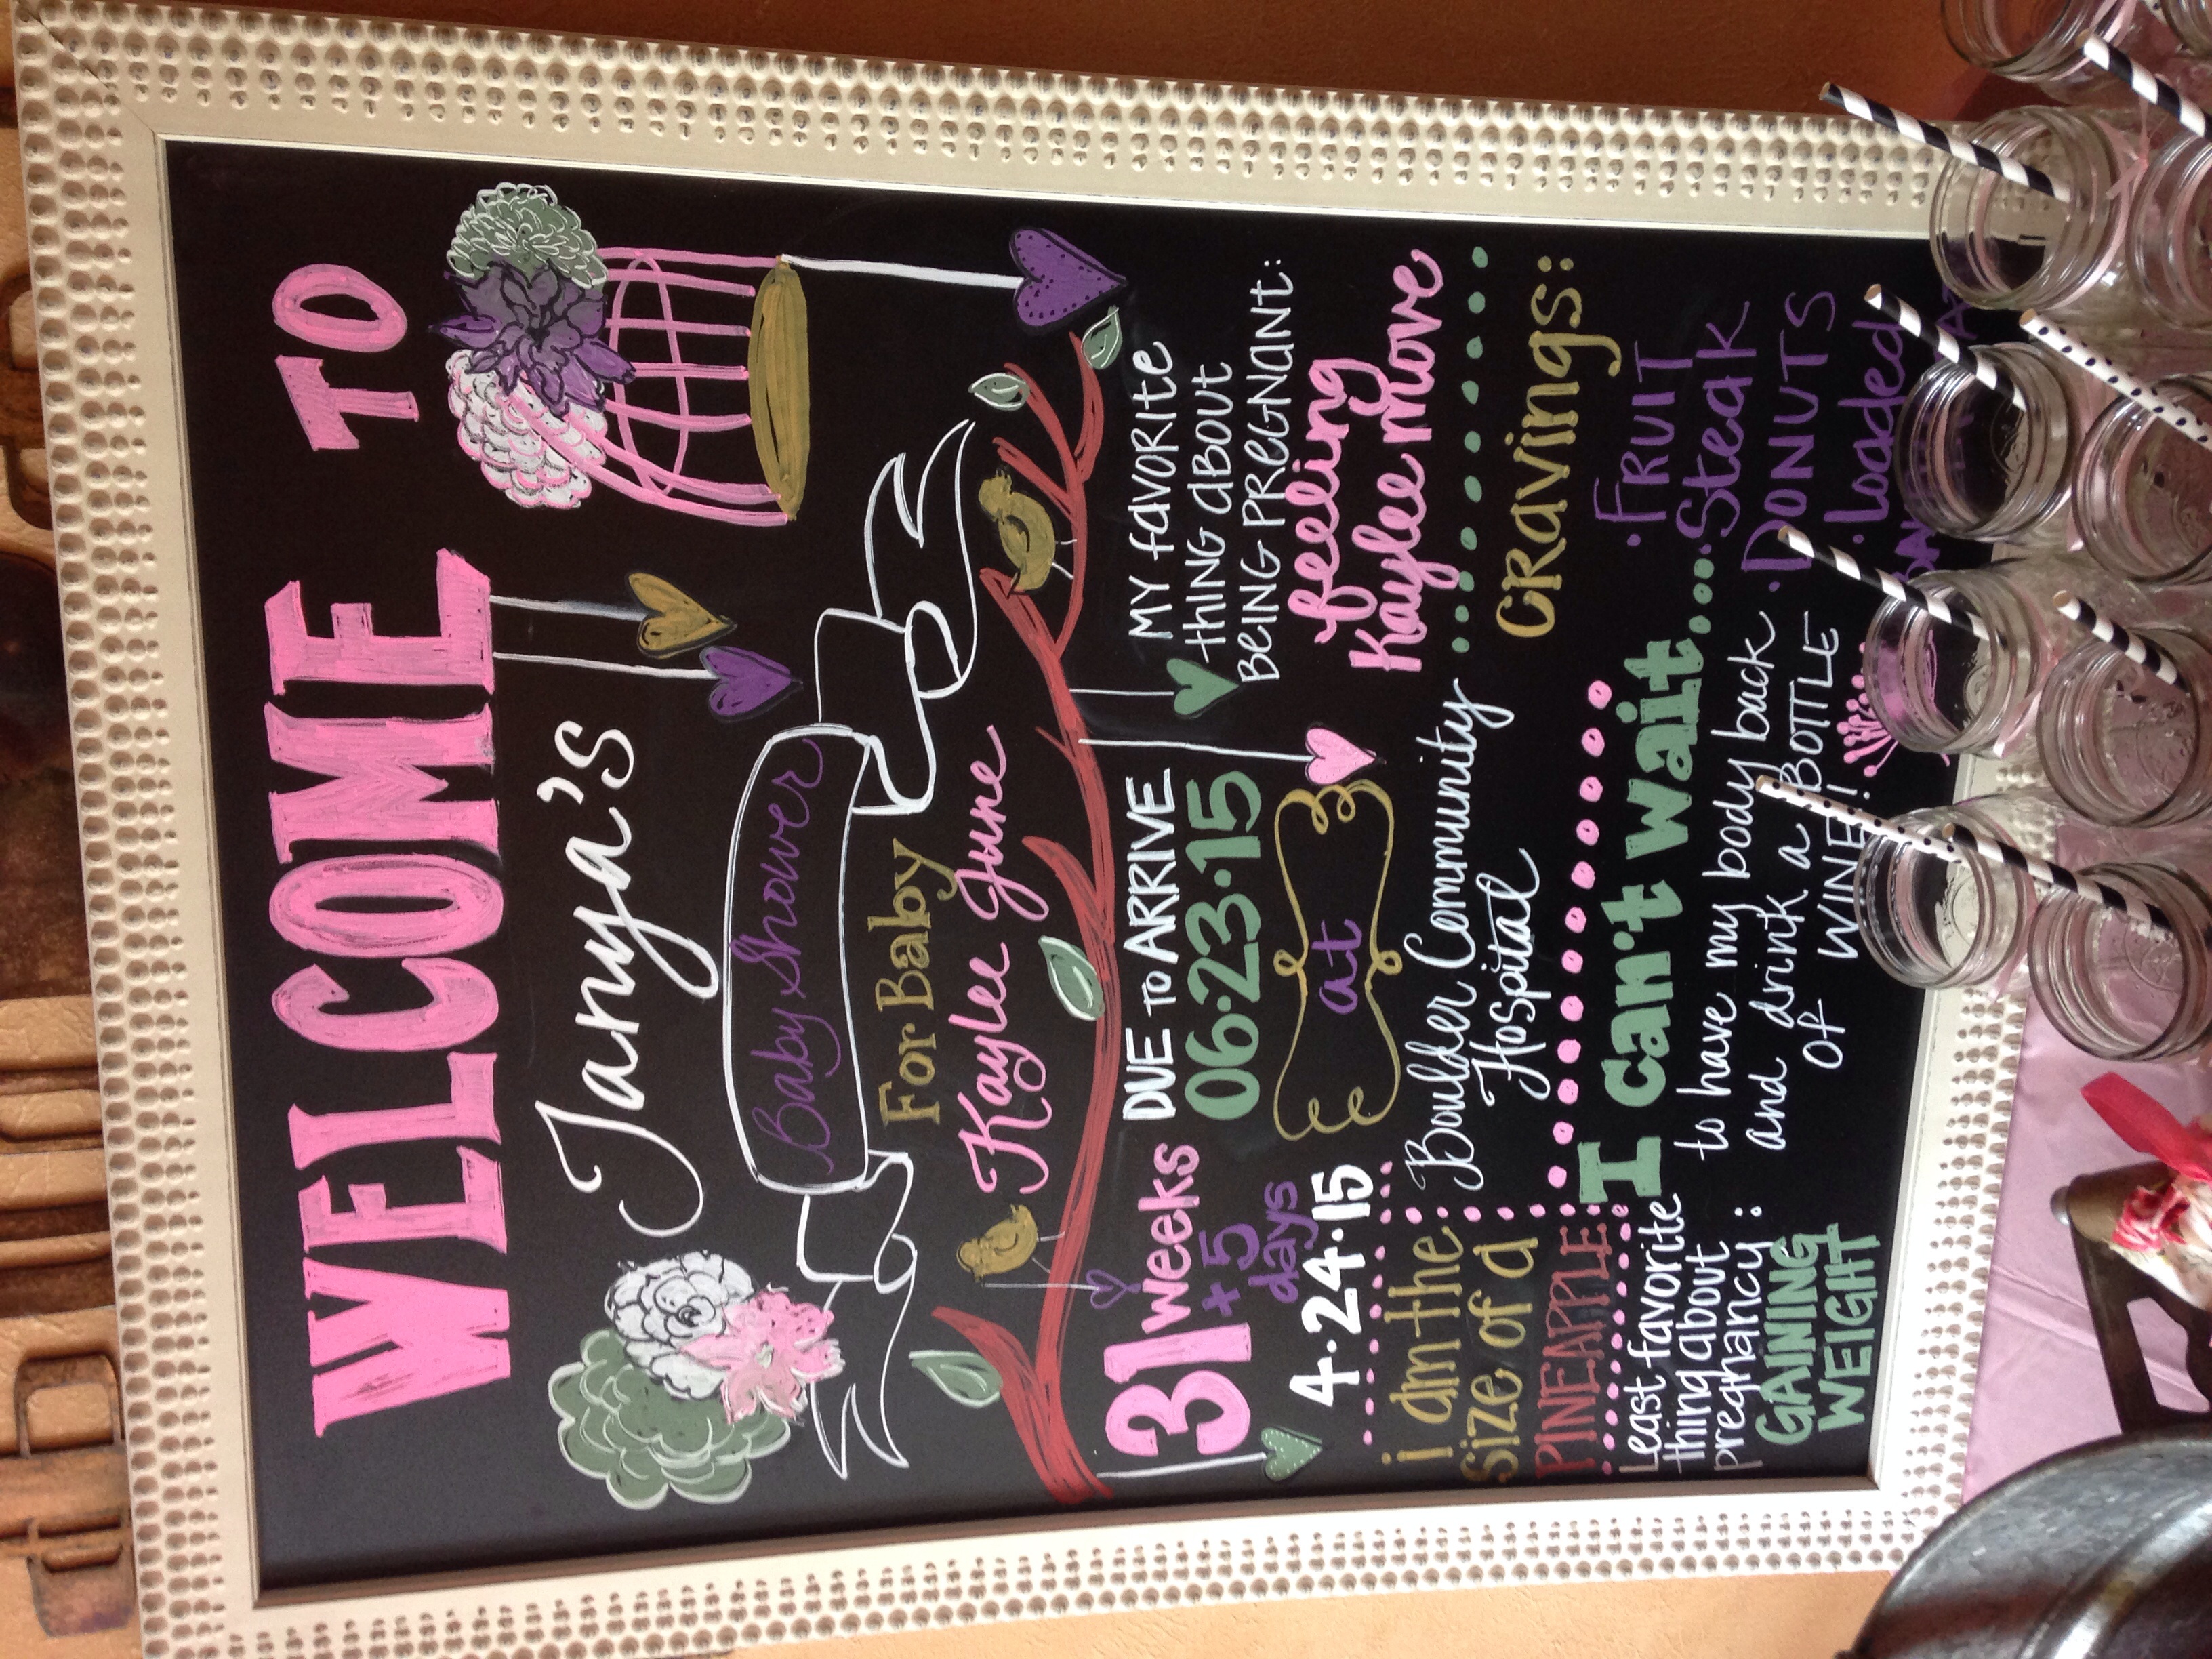 WELCOME TO
Tanya's
Baby Shower
For Baby
Kaylee June
31 weeks
+ 5
days
4·24·15
i am the
size of a
PINEAPPLE
Least favorite
thing about
pregnancy:
GAINING
WEIGHT
DUE TO ARRIVE
06·23·15
at
Boulder Community
Hospital
I can't wait...
to have my body back
and drink a BOTTLE
OF WINE!
MY FAVORITE
thING aBOUT
BEING PREGNANT:
feeling
Kaylee move
CRavings:
·FRUIT
·Steak
·DONUTS
·Loaded